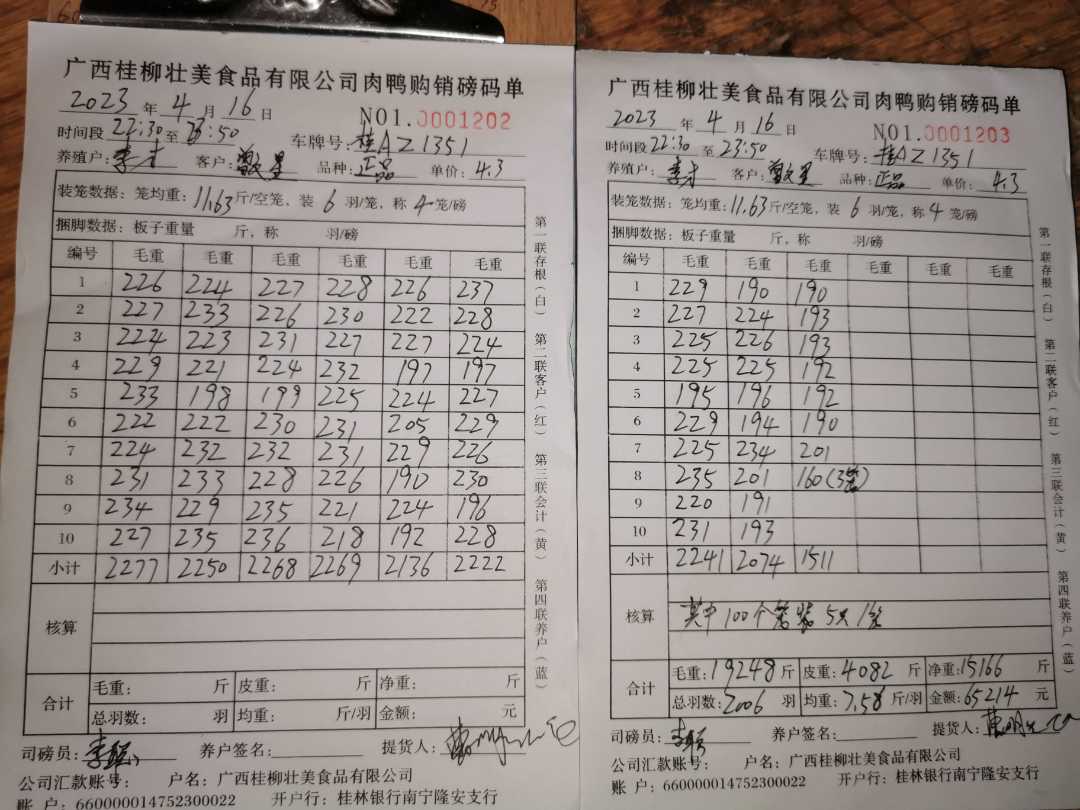 广西桂柳壮美食品有限公司肉鸭购销磅码单
2023 年 4 月 16 日 NO1.0001202
时间段 22:30 至 23:50 车牌号: 桂AZ1351
养殖户: 李才 客户: 品种: 正品 单价: 4.3
装笼数据: 笼均重: 11.63 斤/空笼, 装 6 羽/笼, 称 4 笼/磅
捆脚数据: 板子重量 斤, 称 羽/磅
编号 毛重 毛重 毛重 毛重 毛重 毛重
1 226 224 227 228 226 237
2 227 233 226 230 222 228
3 224 223 231 227 227 224
4 229 221 224 232 197 197
5 233 198 199 225 224 227
6 222 222 230 231 205 229
7 224 232 232 231 229 226
8 231 233 228 226 190 230
9 234 229 235 221 224 196
10 227 235 236 218 192 228
小计 2277 2250 2268 2269 2136 2222
核算
合计 毛重: 斤 皮重: 斤 净重: 斤
总羽数: 羽 均重: 斤/羽 金额: 元
司磅员: 养户签名: 提货人:
公司汇款账号: 户名: 广西桂柳壮美食品有限公司
账 户: 660000014752300022 开户行: 桂林银行南宁隆安支行
第一联存根(白) 第二联客户(红) 第三联会计(黄) 第四联养户(蓝)
广西桂柳壮美食品有限公司肉鸭购销磅码单
2023 年 4 月 16 日 NO1.0001203
时间段 22:30 至 23:50 车牌号: 桂AZ1351
养殖户: 李才 客户: 品种: 正品 单价: 4.3
装笼数据: 笼均重: 11.63 斤/空笼, 装 6 羽/笼, 称 4 笼/磅
捆脚数据: 板子重量 斤, 称 羽/磅
编号 毛重 毛重 毛重 毛重 毛重 毛重
1 229 190 190
2 227 224 193
3 225 226 193
4 225 225 192
5 195 196 192
6 229 194 190
7 225 234 201
8 235 201 160(3笼)
9 220 191
10 231 193
小计 2241 2074 1511
核算 其中100个笼装5只1笼
合计 毛重: 19248 斤 皮重: 4082 斤 净重: 15166 斤
总羽数: 2006 羽 均重: 7.58 斤/羽 金额: 65214 元
司磅员: 养户签名: 提货人:
公司汇款账号: 户名: 广西桂柳壮美食品有限公司
账 户: 660000014752300022 开户行: 桂林银行南宁隆安支行
第一联存根(白) 第二联客户(红) 第三联会计(黄) 第四联养户(蓝)